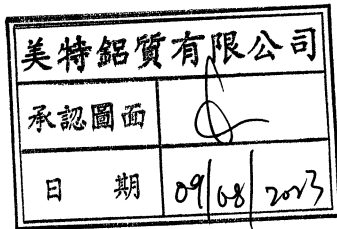 美特鋁質有限公司
承認圖面
日期 09/08/2023